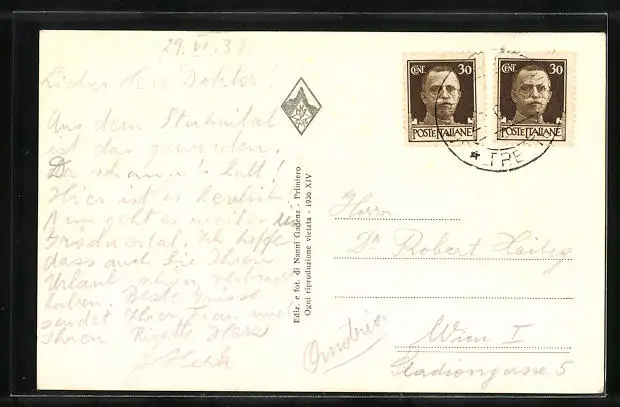 29. VI. 37
Lieber Herr Doktor!
Aus dem Stubaital
ist das geworden.
Da schaun's halt!
Hier ist es herrlich
Nun geht es weiter ins
Grödnertal. Ich hoffe
dass auch Sie Ihren
Urlaub schön verbracht
haben. Beste Grüsse
sendet Ihrer Frau und
Ihnen
Ediz. e fot. di Nanni Gadenz - Primiero
Ogni riproduzione vietata - 1936 XIV
CENT. 30
POSTE ITALIANE
CENT. 30
POSTE ITALIANE
TRE
Herrn
Dr Robert Heilig
Wien I
Stadiongasse 5